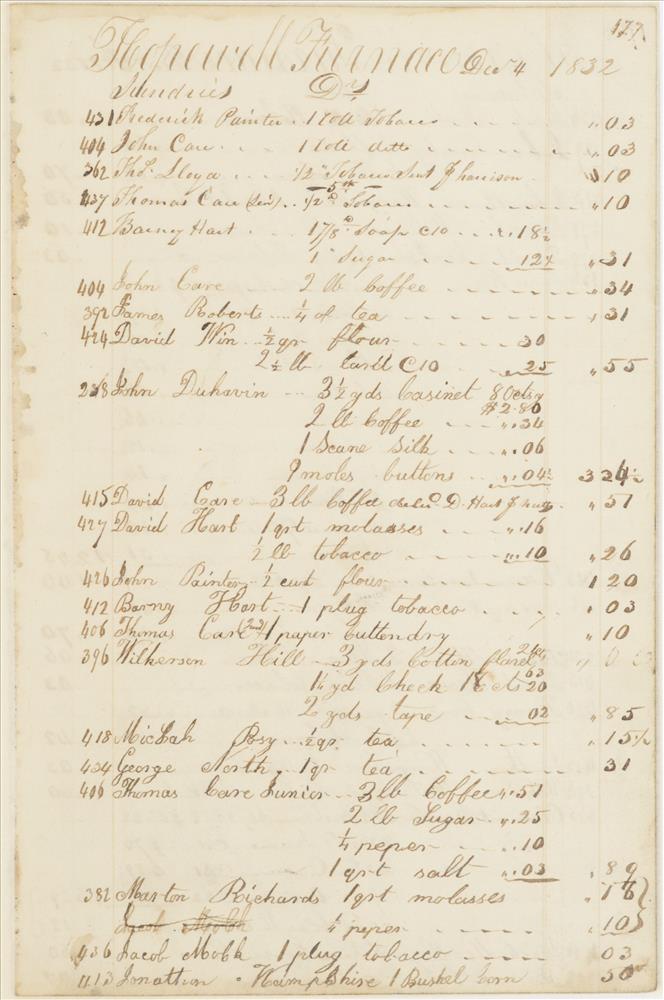 177
Hopewell Furnace Decr 4 1832
Sundries Drs
431 Frederick Painter . 1 roll Tobacco - - - - " 03
404 John Care . . . 1 roll ditto - - - - " 03
362 Thos. Lloyd . . . 1/2 " Tobacco Sent J harrison " 10
437 Thomas Care (Sen) . . 1/2 lb Tobacco - - - - " 10
412 Barney Hart . . 1 7/8 lb Soap C10 - - ". 18 1/2
1 " Sugar - - 12 1/2 " 31
404 John Care 2 lb Coffee - - - - " 34
392 James Roberts - - 1/4 of tea - - - - " 31
424 David Win - 1/2 qr flour - - - 30
2 1/2 lb lard C10 - - " 25 " 55
238 John Duhavin - - 3 1/2 yds Casinet 80cts y
$2.80
2 lb Coffee - - - ". 34
1 Scane Silk - - ". 06
9 moles buttons - - ". 04 1/2 3 24 1/2
415 David Care - 3 lb Coffee D. Hart " 51
427 David Hart 1 qrt molasses - - - ". 16
1/2 lb tobacco - - - - "". 10 " 26
426 John Painter - 1/2 cwt flour - - - - 1 20
412 Barny Hart - - 1 plug tobacco - - - " 03
406 Thomas Care (2nd) 1 paper buttendry " 10
396 Wilkerson Hill - 3 yds Cotton flanel
63
1 1/4 yd Check 16 cts 20
2 yds tape - - 02 " 85
418 Micbah Posy - - 1/2 qr tea - - - - " 15 1/2
434 George North, 1 qr tea - - - - 31
406 Thomas Care Junier - - 3 lb Coffee ". 51
2 lb Sugar - ". 25
1/4 peper - - ". 10
1 qrt salt - ". 03 " 89
382 Marton Richards 1 qrt molasses " 16
Jacob Mobk 1/4 peper - - - - " 10
436 Jacob Mobk 1 plug tobacco - - - - 03
1113 Jonathon . Hampshire 1 Bushel Corn 50